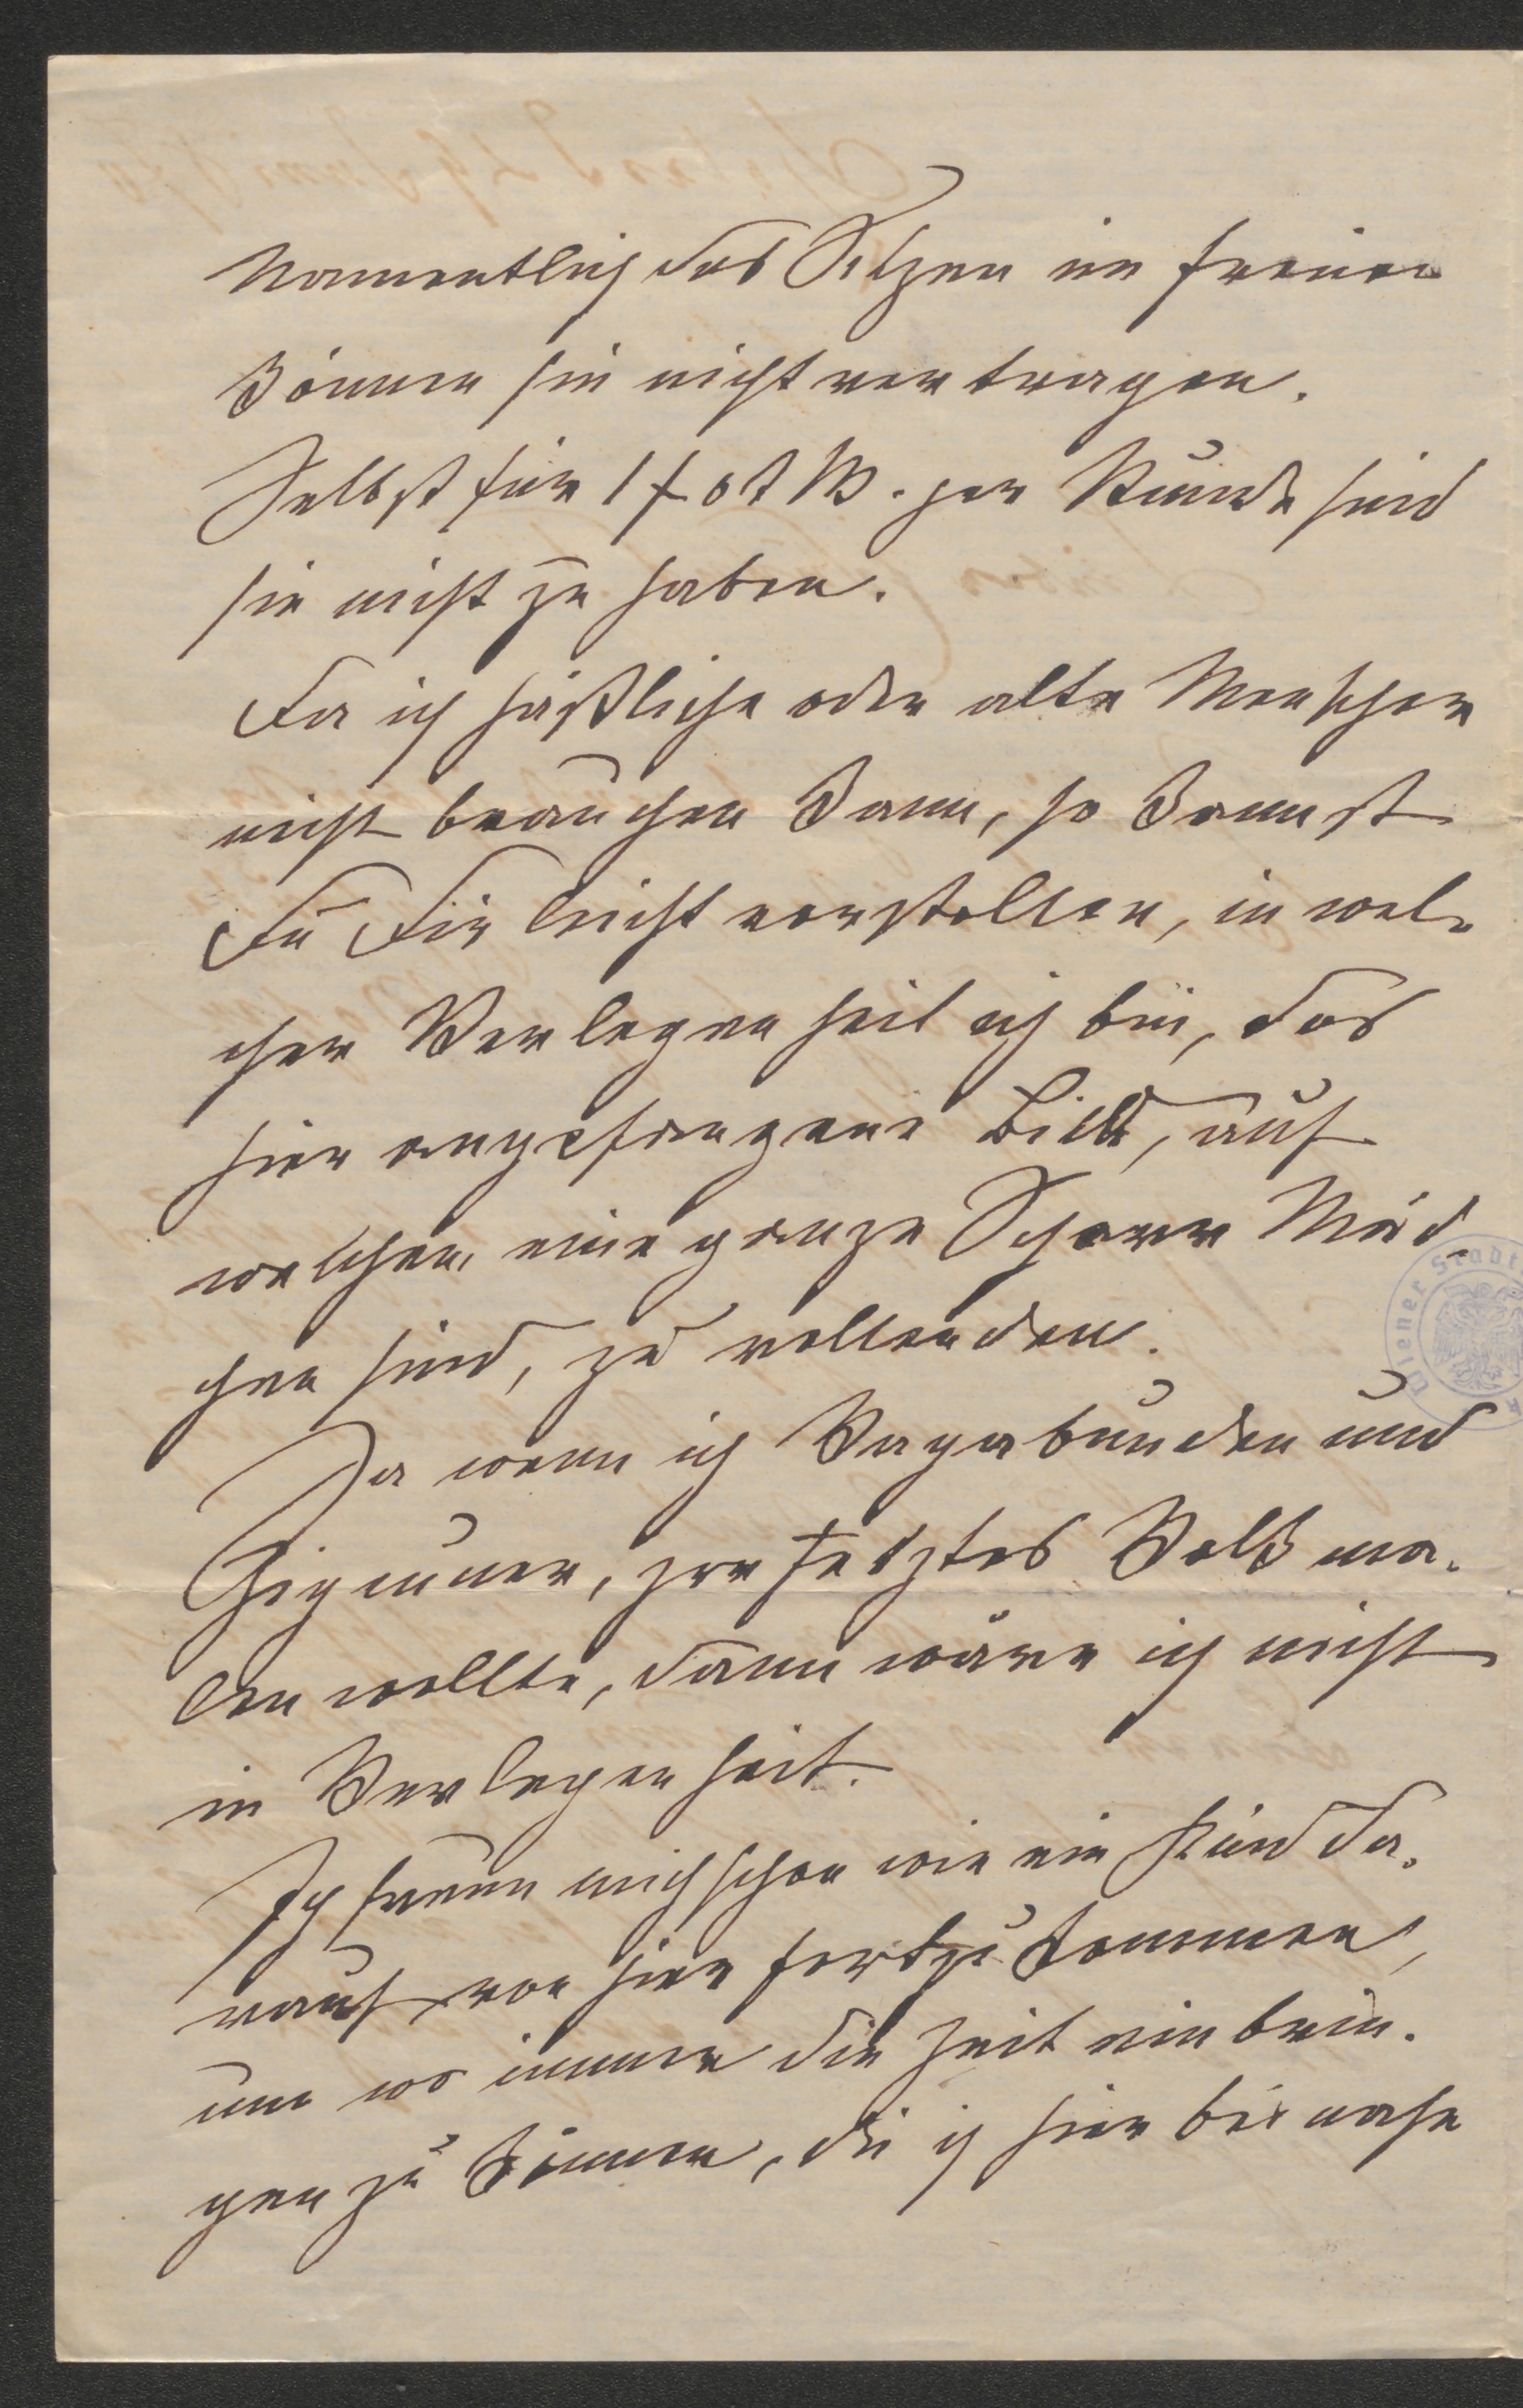 namentlich das Sitzen im freien
können sie nicht vertragen.
Selbst für 1 f ö s W. per Stunde sind
sie nicht zu haben.
Da ich häßliche oder alte Menschen
nicht brauchen kann, so kannst
Du Dir leicht vorstellen, in wel-
cher Verlegenheit ich bin, das
hier angefangene Bild, auf
welchem eine ganze Schaar Mäd-
chen sind, zu vollenden.
Ja wenn ich Vagabunden und
Zigeuner, zerfetztes Volk ma-
len wollte, dann wäre ich nicht
in Verlegenheit.
Ich freue mich schon wie ein Kind da-
rauf von hier fortzukommen,
um wo immer die Zeit einbrin-
gen zu können, die ich hier beinahe
Wiener Stadt